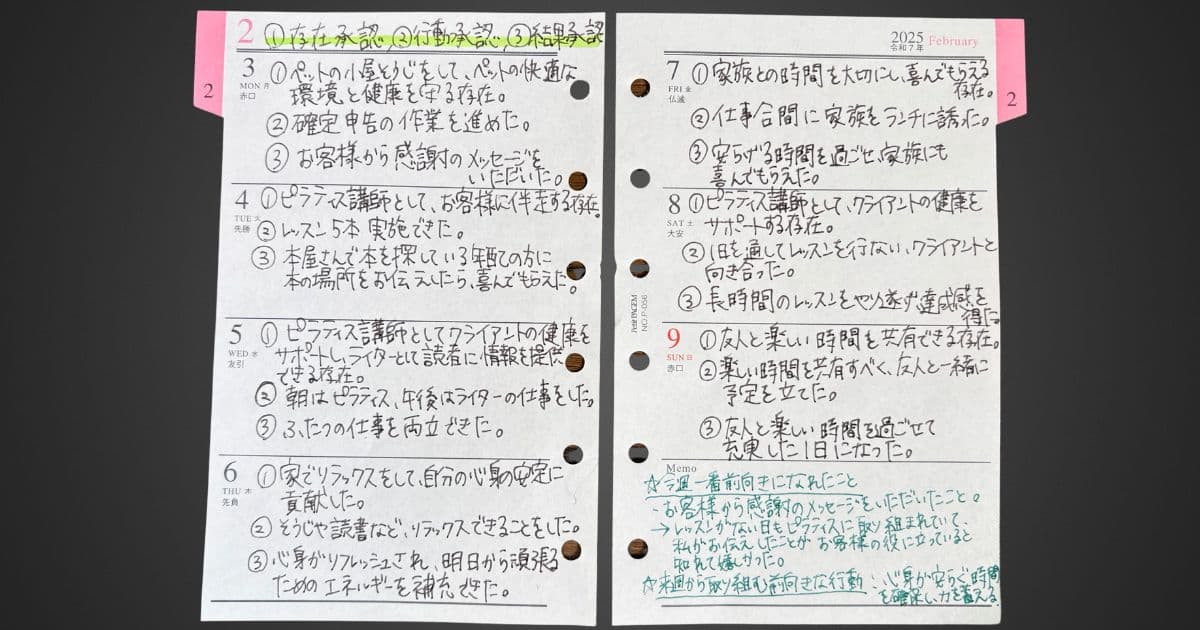 2
2 ①存在承認、②行動承認、③結果承認
3 ①ペットの小屋そうじをして、ペットの快適な
MON 月
赤口
環境と健康を守る存在。
②確定申告の作業を進めた。
③お客様から感謝のメッセージを
いただいた。
4 ①ピラティス講師として、お客様に伴走する存在。
TUE 火
先勝
②レッスン5本実施できた。
③本屋さんで本を探している年配の方に
本の場所をお伝えしたら、喜んでもらえた。
5 ①ピラティス講師としてクライアントの健康を
WED 水
友引
サポートし、ライターとして読者に情報を提供
できる存在。
②朝はピラティス、午後はライターの仕事をした。
③ふたつの仕事を両立できた。
6 ①家でリラックスをして、自分の心身の安定に
THU 木
先負
貢献した。
②そうじや読書など、リラックスできることをした。
③心身がリフレッシュされ、明日から頑張る
ためのエネルギーを補充できた。
2025 February
令和7年
2
7 ①家族との時間を大切にし、喜んでもらえる
FRI 金
仏滅
存在。
②仕事合間に家族をランチに誘った。
③安らげる時間を過ごせ、家族にも
喜んでもらえた。
8 ①ピラティス講師として、クライアントの健康を
SAT 土
大安
サポートする存在。
②1日を通してレッスンを行ない、クライアントと
向き合った。
③長時間のレッスンをやり遂げ達成感を
得た。
9 ①友人と楽しい時間を共有できる存在。
SUN 日
赤口
②楽しい時間を共有すべく、友人と一緒に
予定を立てた。
③友人と楽しい時間を過ごせて
充実した1日になった。
Memo
☆今週一番前向きになれたこと
・お客様から感謝のメッセージをいただいたこと。
→レッスンがない日もピラティスに取り組まれていて、
私がお伝えしたことがお客様の役に立っていると
知れて嬉しかった。
☆来週から取り組む前向きな行動:心身が安らぐ時間
を確保し、力を蓄える。
NO.P-096